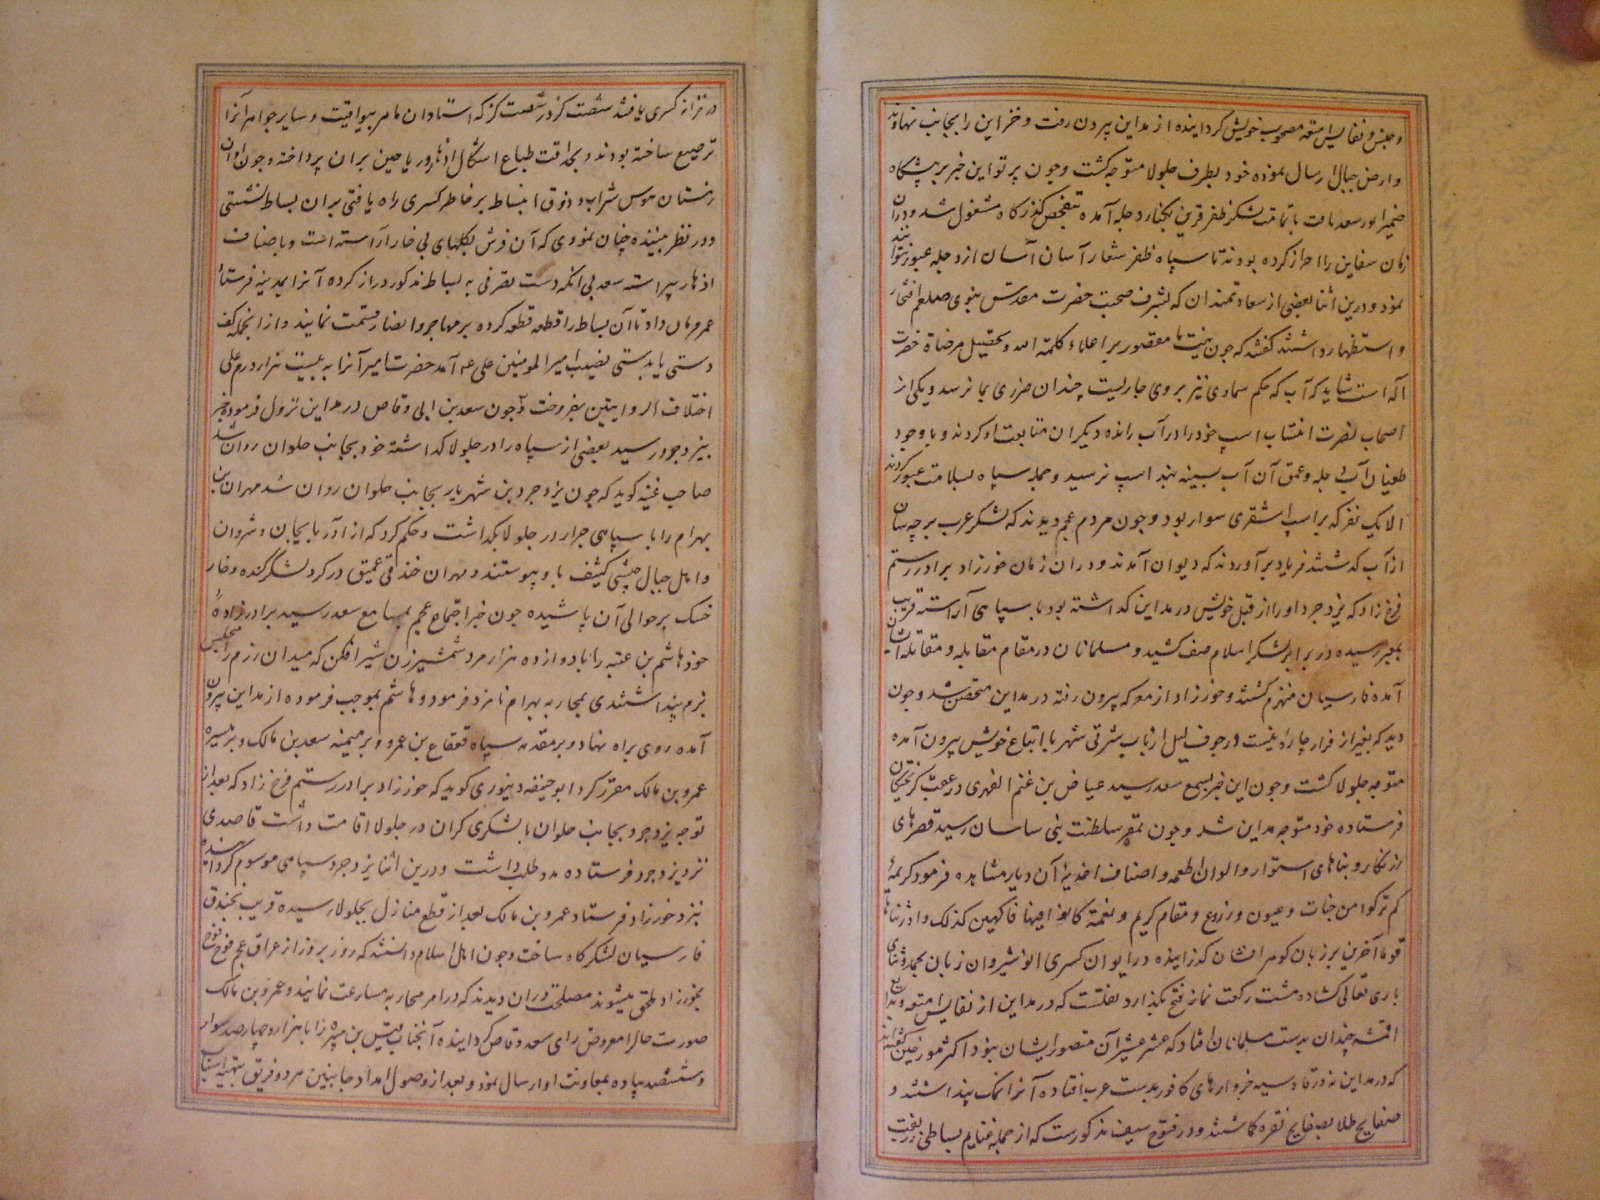 و جنس و نفایس امتعه مصحوب خویش کردانیده از مداین بیرون رفت و خزاین را بجانب نهاوند
و ارض جبال ارسال نموده خود بطرف جلولا متوجه کشت و چون پرتو این خبر بر پیشکاه
ضمیر انور سعد تافت با تمامت لشکر ظفر قرین بکنار دجله آمده بتفحص کذرکاه مشغول شد و دران
زمان سفاین را احراز کرده بودند تا سپاه ظفر شعار آسان آسان از دجله عبور نتوانند
نمود و درین اثنا بعضی از سعادتمندان که بشرف صحبت حضرت مقدس نبوی صلعم
و استظهار داشتند کفتند که چون نیت ما مقصور بر اعلاء کلمته الله و تحصیل مرضاة حضرت
اله است شاید که آب که بحکم سماوی نیز بر وی جاریست چندان ضرری بما نرسد و یکی از
اصحاب نصرت انتساب اسپ خود را در آب رانده دیکران متابعت او کردند و با وجود
طغیان آب دجله و عمق آن آب بسینه بند اسپ نرسید و جمله سپاه بسلامت عبور کردند
الا یک نفر که بر اسپ اشقری سوار بود و چون مردم عجم دیدند که لشکر عرب بر چه سان
از آب کذشتند فریاد برآوردند که دیوان آمدند و دران زمان خورزاد برادر رستم
فرخ زاد که یزدجرد او را از قبل خویش در مداین کذاشته بود با سپاهی آراسته قریب
بمعبر رسیده در برابر لشکر اسلام صف کشید و مسلمانان در مقام مقابله و مقاتله ایشان
آمده فارسیان منهزم کشتند و خورزاد از معرکه بیرون رفته در مداین متحصن شد و چون
دید که بغیر از فرار چاره نیست در جوف لیل از باب شرقی شهر با اتباع خویش بیرون آمده
متوجه جلولا کشت و چون این خبر بسمع سعد رسید عیاض بن غنم الفهری در عقب کریختکان
فرستاده خود متوجه مداین شد و چون بمقر سلطنت بنی ساسان رسید قصرهای
زرنکار و بناهای استوار و الوان اطعمه و اصناف اغذیه آن دیار مشاهده فرمود کریمۀ
کم ترکوا من جنات و عیون و زروع و مقام کریم و نعمة کانوا فیها فاکهین کذلک و اورثناها
قوما آخرین بر زبان کوهر افشان کذرانیده در ایوان کسری انوشیروان زبان بحمد و ثنای
باری تعالی کشاده هشت رکعت نماز فتح بکذارد نقلست که در مداین از نفایس امتعه و بدایع
اقمشه چندان بدست مسلمانان افتاد که عشر عشیر آن متصور ایشان نبود اکثر مورخین کفته‌اند
که در مداین نه در قادسیه خروارهای کافور بدست عرب افتاده آنرا نمک پنداشتند و
صفایح طلا بصفایح نقره کماشتند و در فتوح سیف مذکورست که از جمله غنایم بساطی زربفت
در خزانه کسری یافتند شصت کز در شصت کز که استادان ماهر بیواقیت و سایر جواهر آنرا
ترصیع ساخته بودند و بحذاقت طباع اشکال ازهار و ریاحین بران پرداخته و چون اوان
زمستان هوس شراب و ذوق انبساط بر خاطر کسری راه یافتی بران بساط نشستی
و در نظر بیننده چنان نمودی که آن فرش بکلهای بی خار آراسته است و باصناف
ازهار پیراسته سعد بی انکه دست تصرفی به بساط مذکور دراز کرده آنرا بمدینه فرستاد
عمر فرمان داد تا آن بساط را قطعه قطعه کرده بر مهاجر و انصار قسمت نمایند و از انجمله کف
دستی یا بدستی نصیب امیر المومنین علی ع آمد حضرت امیر آنرا به بیست هزار درم علی
اختلاف الروایتین بفروخت و چون سعد بن ابی وقاص در مداین نزول فرمود خبر
بیزدجرد رسید بعضی از سپاه را در جلولا کذاشته خود بجانب حلوان روان شد
صاحب غنیه کوید که چون یزدجرد بن شهریار بجانب حلوان روان شد مهران بن
بهرام را با سپاهی جرار در جلولا بکذاشت و حکم کرد که از آذربایجان و شروان
و اهل جبال جیشی کثیف با و پیوستند و مهران خندقی عمیق در کرد لشکر کنده و خار
خسک بر حوالی آن پاشیده چون خبر اجتماع عجم بمسامع سعد رسید برادرزادهٔ
خود هاشم بن عتبه را با دوازده هزار مرد شمشیرزن شیرافکن که میدان رزم را مجلس
بزم پنداشتندی بمحاربه بهرام نامزد فرمود و هاشم بموجب فرموده از مداین بیرون
آمده روی براه نهاد و بر مقدمه سپاه قعقاع بن عمرو و بر میمنه سعد بن مالک و بر میسره
عمرو بن مالک مقرر کرد ابو حنیفه دینوری کوید که خورزاد برادر رستم فرخ زاد که بعد از
توجه یزدجرد بجانب حلوان با لشکری کران در جلولا اقامت داشت قاصدی
نزد یزدجرد فرستاده مدد طلب داشت و درین اثنا یزدجرد سپاهی موسوم کردانیده
بنزد خورزاد فرستاد عمرو بن مالک بعد از قطع منازل بجلولا رسیده قریب بخندق
فارسیان لشکرکاه ساخت و چون اهل اسلام دانستند که روز بروز از عراق عجم فوج فوج
بخورزاد ملحق میشوند مصلحت دران دیدند که در امر محاربه مسارعت نمایند و عمرو بن مالک
صورت حال را معروض رای سعد وقاص کردانیده آنجناب قیس بن هبیره را با هزار و چهارصد سوار
و ششصد پیاده بمعاونت او ارسال نمود و بعد از وصول امداد جانبین هر دو فریق بتهیه اسباب